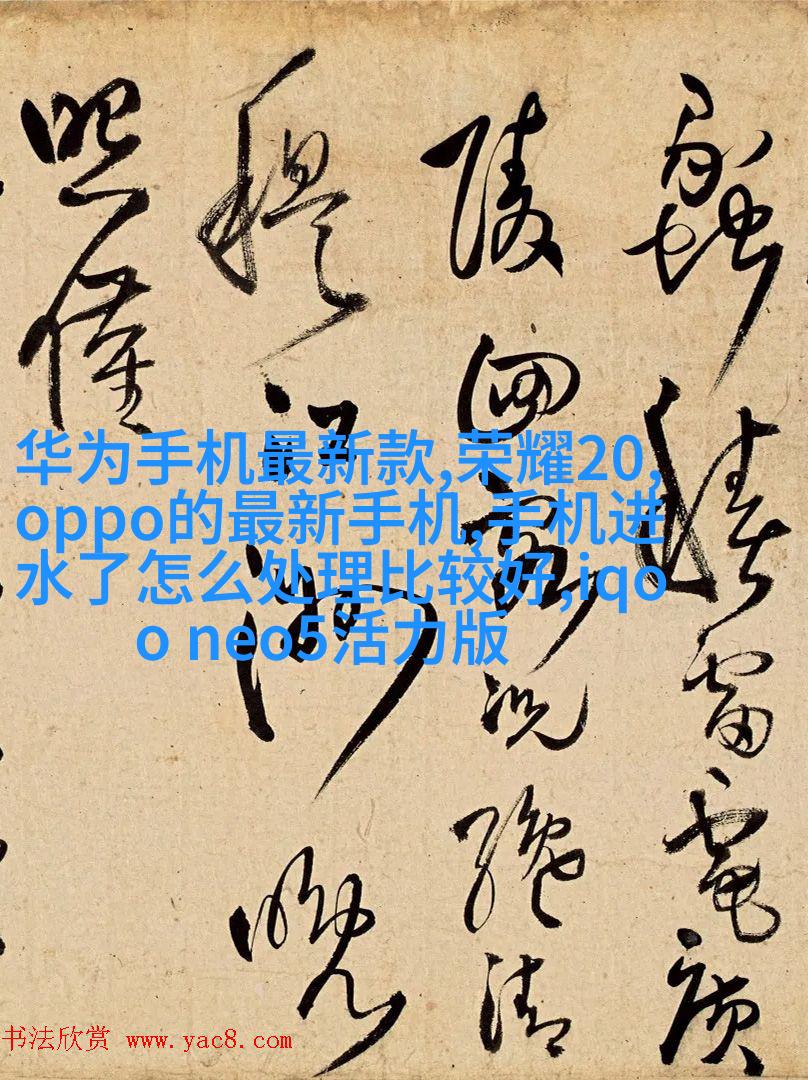 積雷電廣
陵四况絕清
江晚
照僅
华为手机最新款,荣耀20,
oppo的最新手机,手机进
水了怎么处理比较好,iqo
o neo5活力版
书法欣赏 www.yac8.com